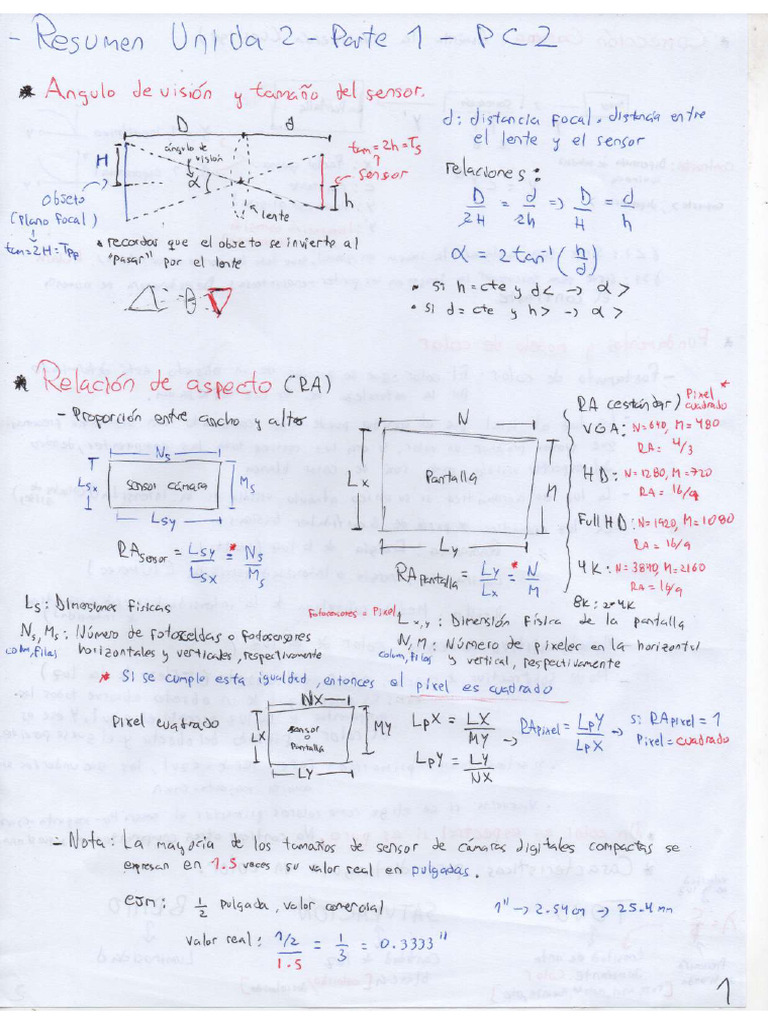 - Resumen Unidad 2 - Parte 1 - PC2
* Angulo de visión y tamaño del sensor.
D d
H
ángulo de visión
α
lente
h
tam = 2h = Ts
sensor
objeto
(plano focal)
tam = 2H = Tpf
* recordar que el objeto se invierte al
"pasar" por el lente
d: distancia focal, distancia entre
el lente y el sensor
relaciones:
D/2H = d/2h => D/H = d/h
α = 2 tan⁻¹ (h/d)
• si h = cte y d< -> α >
• si d = cte y h> -> α >
* Relación de aspecto (RA)
- Proporción entre ancho y alto
Ns
Lsx
sensor cámara
Ms
Lsy
RAsensor = Lsy/Lsx =* Ns/Ms
N
Lx
Pantalla
M
Ly
RApantalla = Ly/Lx =* N/M
RA (estándar) Pixel cuadrado *
VGA: N=640, M=480
RA = 4/3
HD: N=1280, M=720
RA = 16/9
Full HD: N=1920, M=1080
RA = 16/9
4K: N=3840, M=2160
RA = 16/9
8K: 2*4K
Ls: Dimensiones físicas
Ns, Ms: Número de fotoceldas o fotosensores
colum, filas horizontales y verticales, respectivamente
Fotosensores = Pixel
Lx,y: Dimensión física de la pantalla
N, M: Número de pixeles en la horizontal
colum, filas y vertical, respectivamente
* Si se cumple esta igualdad, entonces el pixel es cuadrado
Pixel cuadrado
NX
LX
sensor
o
pantalla
MY
LY
LpX = LX/MY
LpY = LY/NX
RApixel = LpY/LpX
si RApixel = 1
Pixel = cuadrado
- Nota: La mayoría de los tamaños de sensor de cámaras digitales compactas se
expresan en 1.5 veces su valor real en pulgadas.
ejm: 1/2 pulgada, valor comercial
1" -> 2.54cm -> 25.4mm
valor real: 1/2/1.5 = 1/3 = 0.3333"
1